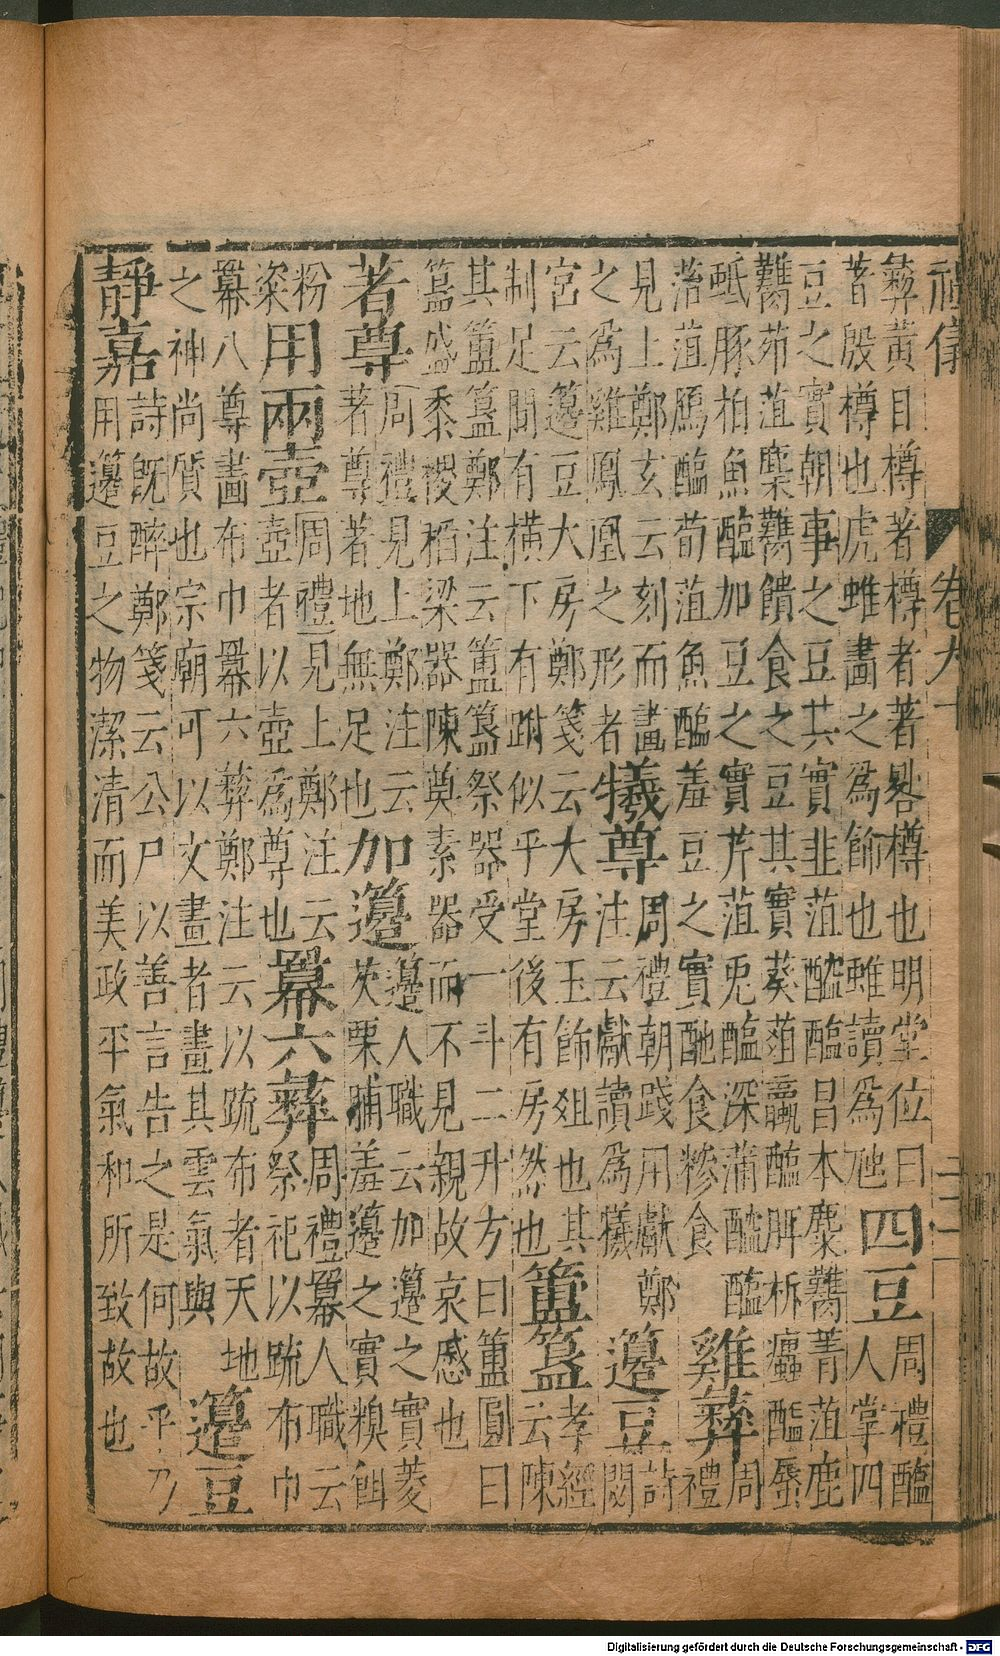 卷九
彝黃目樽著樽者著畧樽也明堂位曰
著殷樽也虎蜼畫之為飾也蜼讀為虺
四豆
周禮醢
人掌四
豆之實朝事之豆其實韭菹醓醢昌本麋臡菁菹鹿
臡茆菹麋臡饋食之豆其實葵菹蠃醢脾析蠯醢蜃
蚳豚柏魚醢加豆之實芹菹兎醢深蒲醓醢
落菹鴈醢荀菹魚醢羞豆之實酏食糝食
雞彝
周
禮
見上鄭玄云刻而畫
之為雞鳳凰之形者
犧尊
周禮朝踐用獻鄭
注云獻讀為犧
籩豆
詩
閟
宮云籩豆大房鄭箋云大房玉飾俎也其
制足間有橫下有跗似乎堂後有房然也
簠簋
孝經
云陳
其簠簋鄭注云簠簋祭器受一斗二升方曰簠圓曰
簋盛黍稷稻粱器陳奠素器而不見親故哀慼也
著尊
周禮見上鄭注云
著尊著地無足也
加籩
籩人職云加籩之實菱
芡栗脯羞籩之實糗餌
粉
粢
用兩壺
周禮見上鄭注云
壺者以壺為尊也
羃六彝
周禮羃人職云
祭祀以疏布巾
羃八尊畫布巾羃六彝鄭注云以疏布者天地
之神尚質也宗廟可以文畫者畫其雲氣與
籩豆
靜嘉
詩既醉鄭箋云公尸以善言告之是何故乎乃
用籩豆之物潔清而美政平氣和所致故也
Digitalisierung gefördert durch die Deutsche Forschungsgemeinschaft - DFG